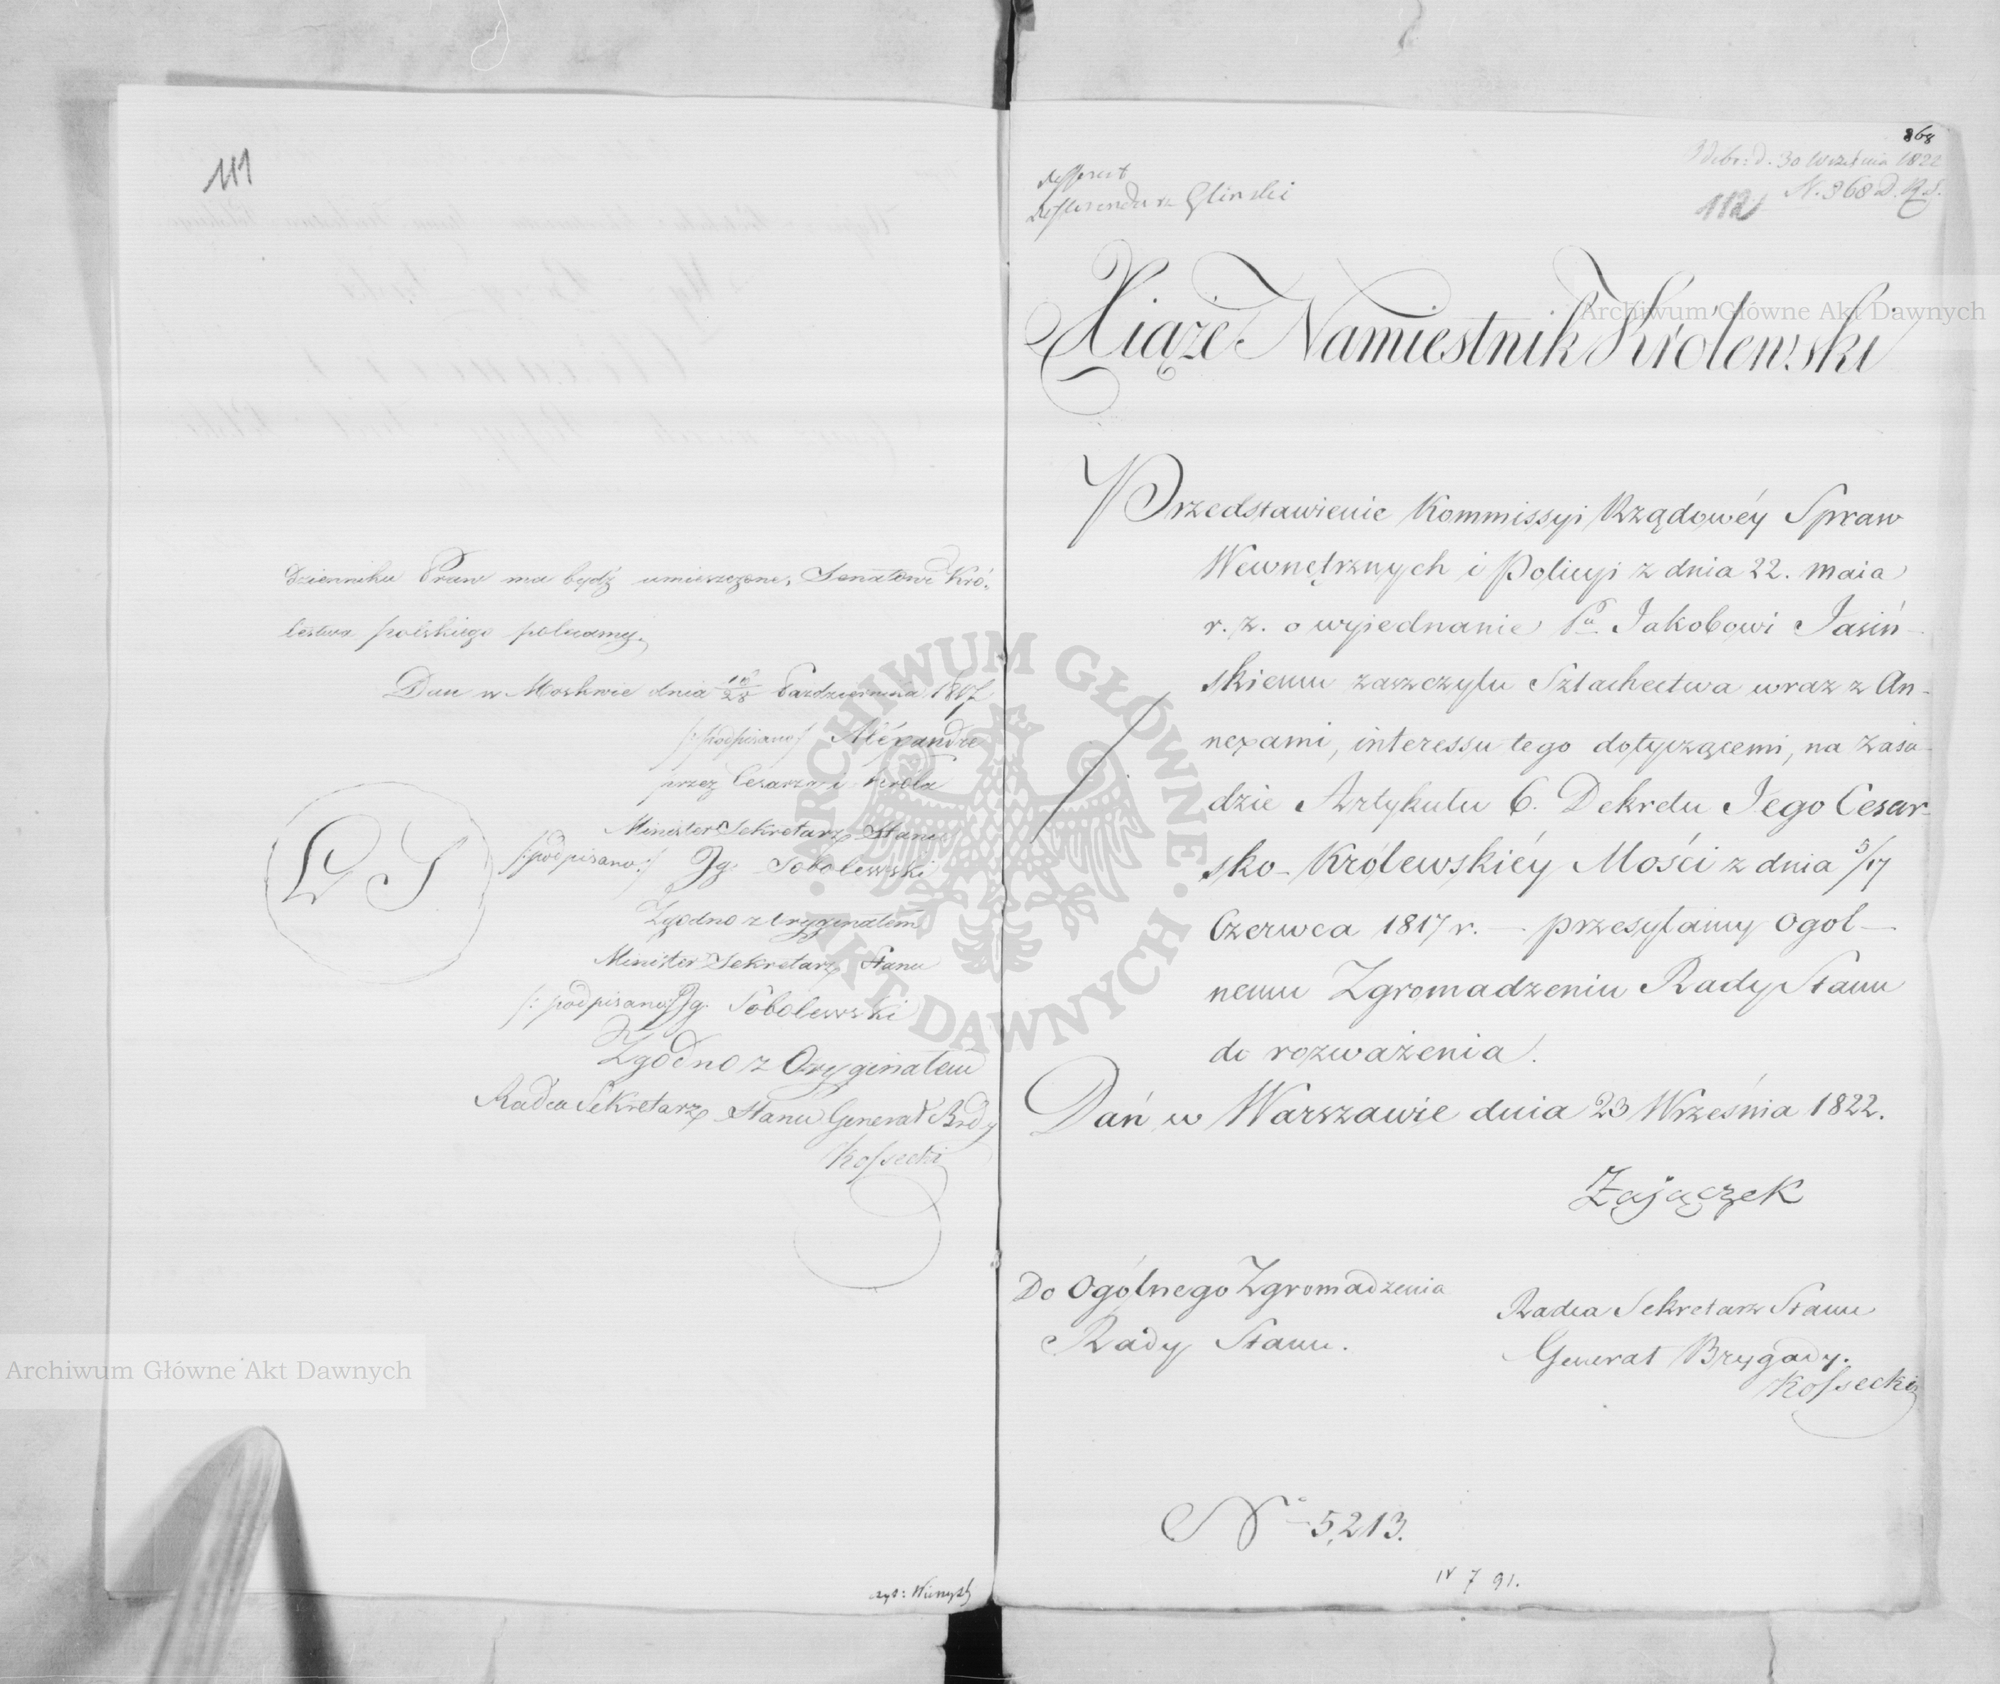 111
Dzienniku Praw ma bydź umieszczone, Senatowi Kró-
lestwa polskiego polecamy.
Dan w Moskwie dnia 16/28 Października 1817
/:podpisano/ Alexandre
przez Cesarza i Króla
Minister Sekretarz Stanu
/:podpisano:/ Jg: Sobolewski
LS
Zgodno z oryginałem
Minister Sekretarz Stanu
/:podpisano:/ Jg: Sobolewski
Zgodno z Oryginałem
Radca Sekretarz Stanu Generał Brdy
Kossecki
368
Odebr: d. 30 Września 1822
N. 368 D.R.S.
112
Referendarz Gliński
Xiąże Namiestnik Królewski
Przedstawienie Kommissyi Rządowéy Spraw
Wewnętrznych i Policyi z dnia 22. maia
r. z. o wyiednanie Pu Jakobowi Jasiń-
skiemu zaszczytu Szlachectwa wraz z An-
nexami, interessu tego dotyczącemi, na zasa-
dzie Artykułu 6. Dekretu Jego Cesar-
sko-Królewskiéy Mości z dnia 5/17
Czerwca 1817 r. — przesyłamy Ogol-
nemu Zgromadzeniu Rady Stanu
do rozważenia.
Dań w Warszawie dnia 23 Września 1822.
Zajączek
Do Ogólnego Zgromadzenia
Rady Stanu.
Radca Sekretarz Stanu
Generał Brygady.
Kossecki
No 5,213.
IV 7 91.
ARCHIWUM GŁÓWNE AKT DAWNYCH
Archiwum Główne Akt Dawnych
Archiwum Główne Akt Dawnych